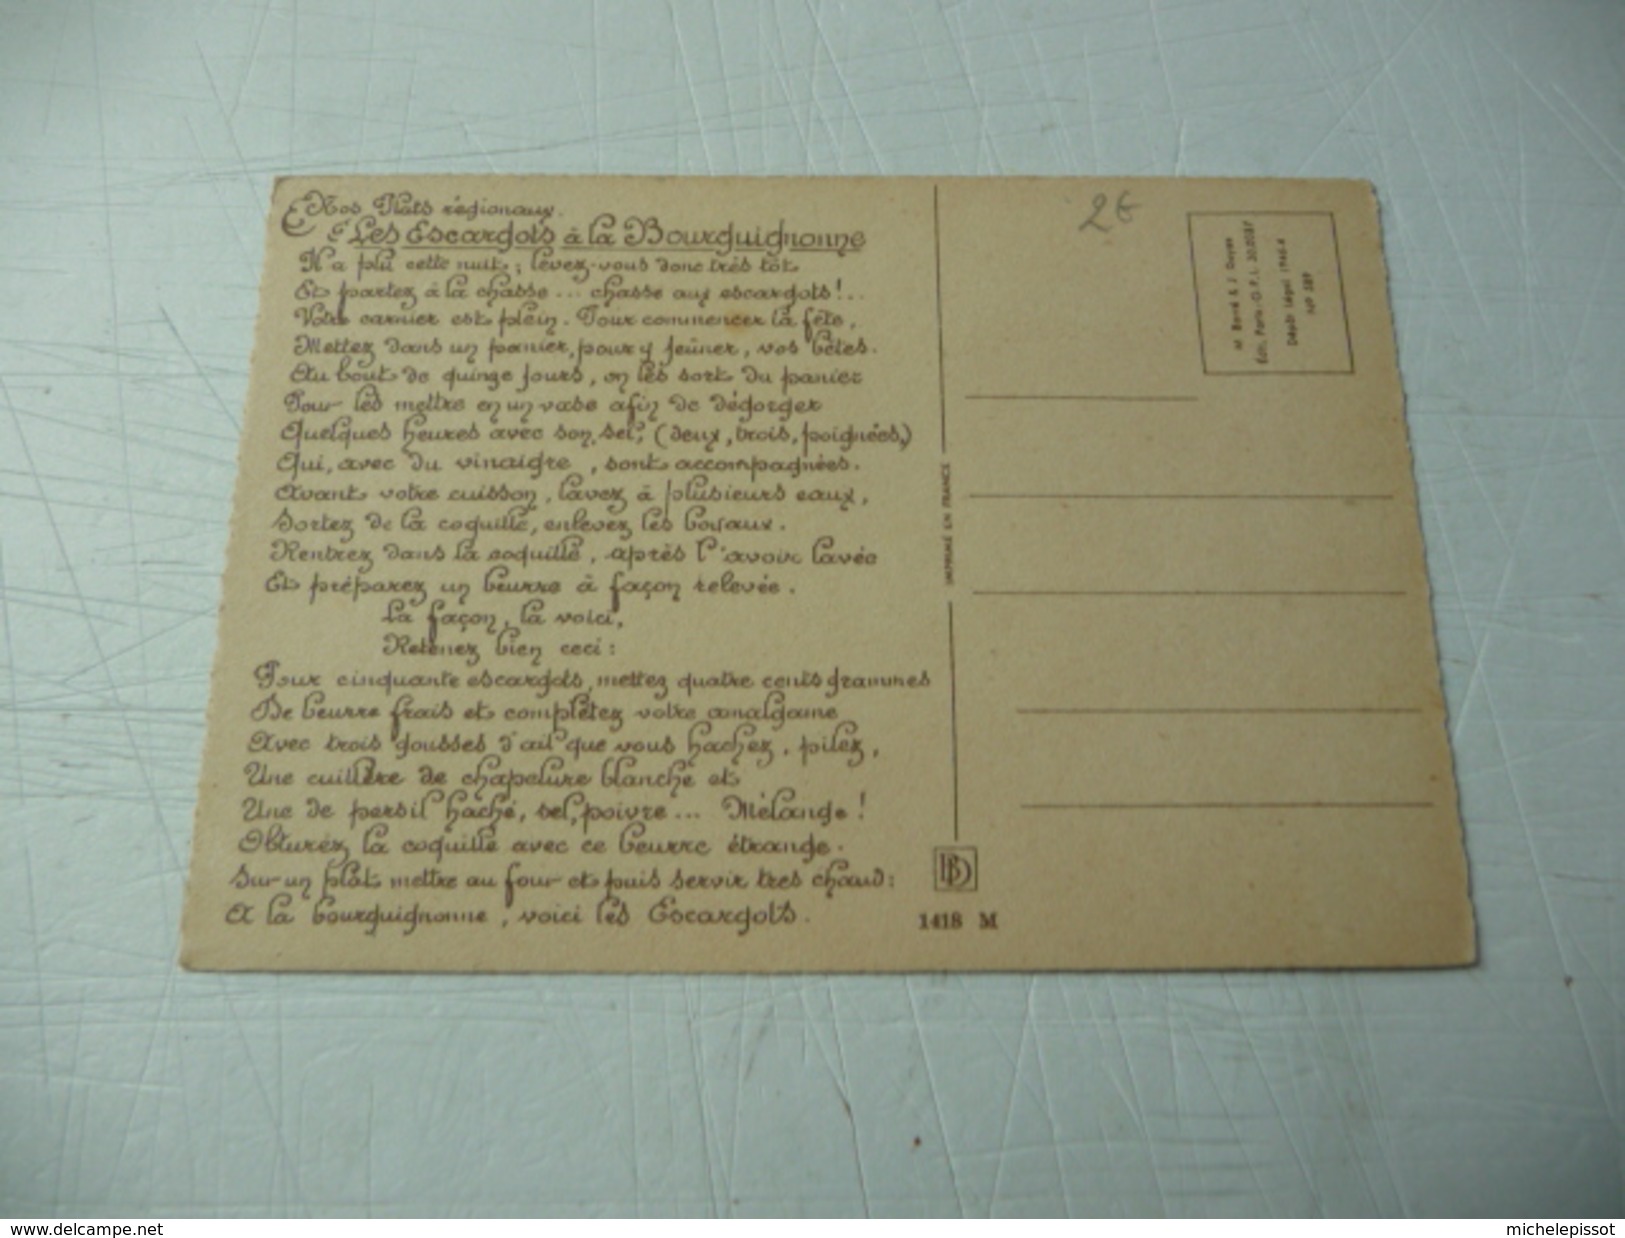 Nos Plats régionaux.
Les Escargots à la Bourguignonne
Il a plu cette nuit ; levez-vous donc très tôt
Et partez à la chasse ... chasse aux escargots !..
Votre carnier est plein. Pour commencer la fête,
Mettez dans un panier, pour y jeûner, vos bêtes.
Au bout de quinze jours, on les sort du panier
Pour les mettre en un vase afin de dégorger
Quelques heures avec son sel, (deux, trois, poignées,)
Qui, avec du vinaigre, sont accompagnées.
Avant votre cuisson, lavez à plusieurs eaux,
Sortez de la coquille, enlevez les boyaux.
Rentrez dans la coquille, après l'avoir lavée
Et préparez un beurre à façon relevée.
La façon, la voici,
Retenez bien ceci :
Pour cinquante escargots, mettez quatre cents grammes
De beurre frais et complétez votre amalgame
Avec trois gousses d'ail que vous hachez, pilez,
Une cuillère de chapelure blanche et
Une de persil haché, sel, poivre ... Mélange !
Obturez la coquille avec ce beurre étrange.
Sur un plat mettre au four et puis servir très chaud :
A la bourguignonne, voici les Escargots.
IMPRIMÉ EN FRANCE
BD
1418 M
2€
M Barré & J Dayez
Édit. Paris-O.P.L.
Dépôt légal 1946-4
Nº 589
www.delcampe.net
michelepissot